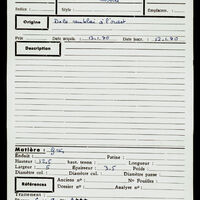 Indice : Style : Emplacem. :
Origine Dale remblai à l'ouest
Prix Date acquis. : 12.1.90 Date inscr. : 12.1.90
Description
Matière : gré,
Enduit : Patine :
Hauteur : 12,5 haut. tenon : Longueur :
Largeur : 5 Epaisseur : 3,5 Poids :
Diamètre col. : Diamètre panse :
Références Anciens nos : No Fouilles :
Dossier : Analyse :
Traitement :